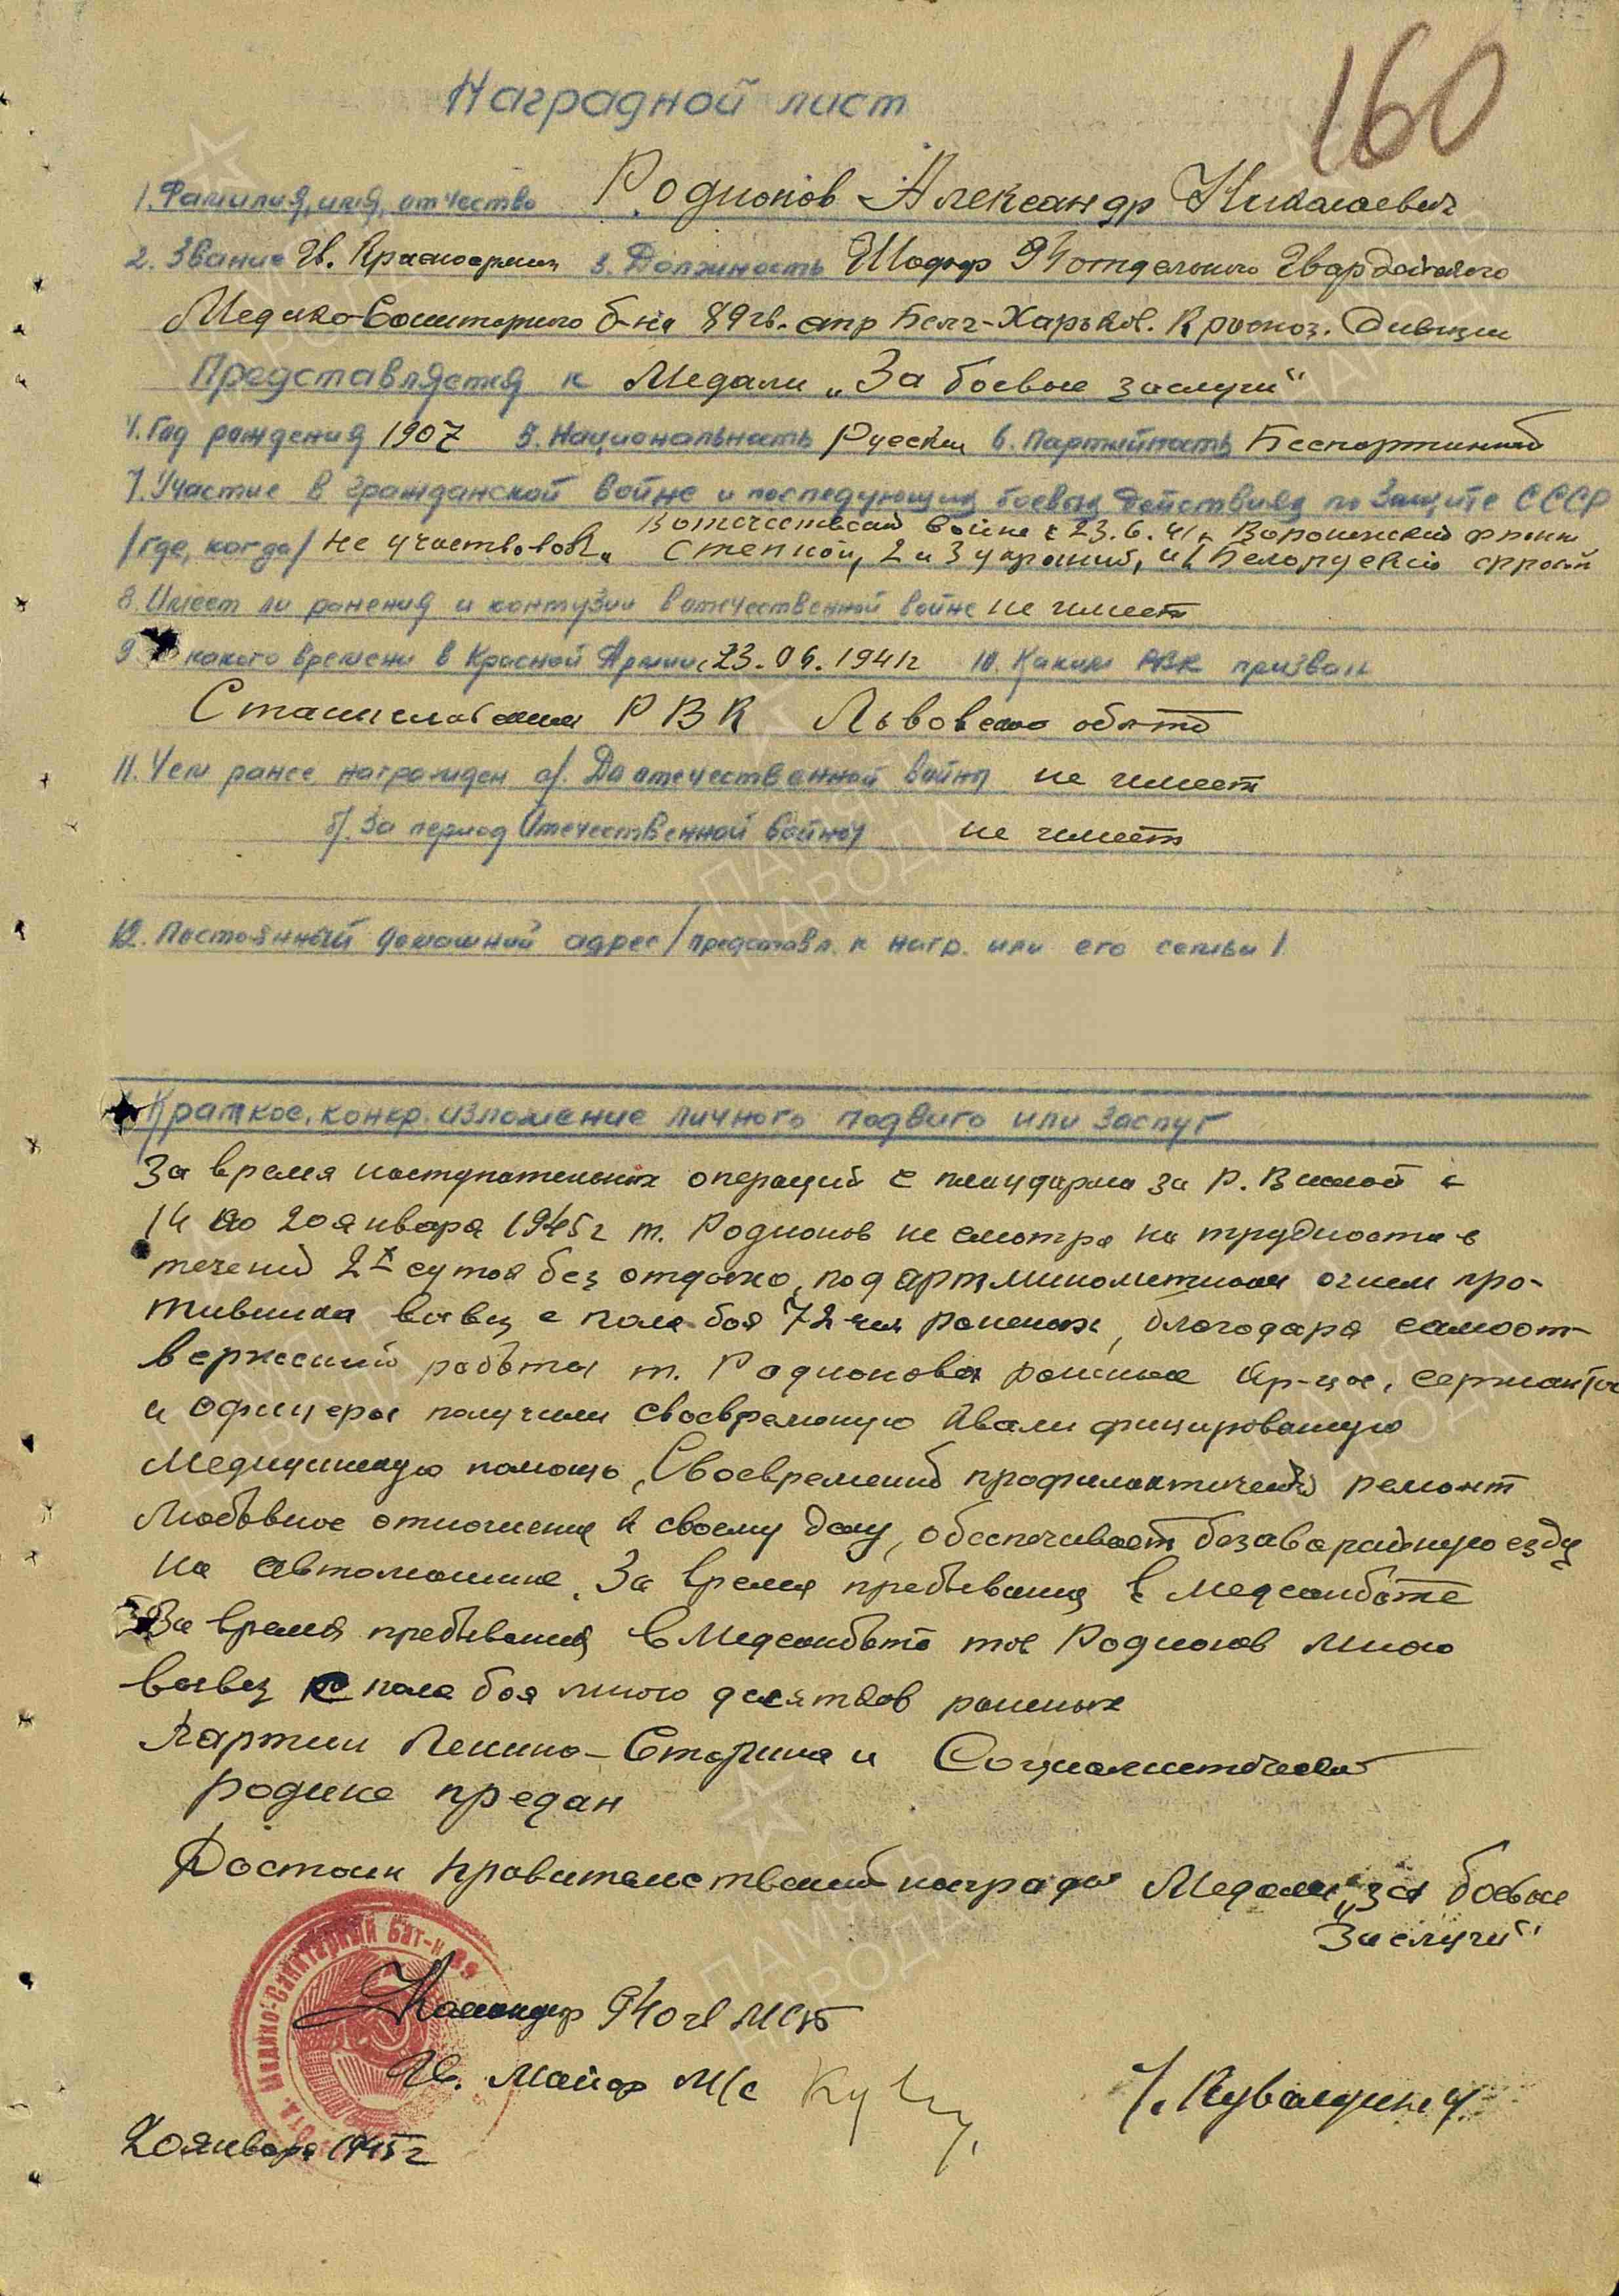 160
Наградной лист
1. Фамилия, имя, отчество Родионов Александр Николаевич
2. Звание Гв. Красноармеец 3. Должность Шофер 94 отдельного Гвардейского
Медико-Санитарного б-на 89 гв. стр Белг-Харьков. Красноз. Дивизии
Представляется к Медали „За боевые заслуги“
4. Год рождения 1907 5. Национальность Русский 6. Партийность Беспартийный
7. Участие в гражданской войне и последующих боевых действиях по защите СССР
В отечественной войне с 23.6.41 г. Воронежский фронт
/где, когда/ не участвовал. Степной, 2 и 3 украинский, и 1 Белорусский фронт
8. Имеет ли ранения и контузии в отечественной войне не имеет
9 какого времени в Красной Армии с 23.06.1941 г 10. Каким РВК призван
Станиславским РВК Львовской обл
11. Чем ранее награжден а/. До отечественной войны не имеет
б/. За период Отечественной войны не имеет
12. Постоянный домашний адрес /представл. к нагр. или его семьи/
Краткое, конкр. изложение личного подвига или заслуг
За время наступательных операций с плацдарма за р. Вислой с
14 по 20 января 1945 г т. Родионов не смотря на трудности в
течений 2х суток без отдыха, под артминометным огнем про-
тивника вывез с поля боя 72 чел раненых, благодаря самоот-
верженной работы т. Родионова раненые кр-цы, сержанты
и офицеры получили своевременную квалифицированую
медицинскую помощь, Своевременный профилактический ремонт
любовное отношение к своему делу, обеспечивает безаварийную езду
на автомашине. За время пребывания в медсанбате
За время пребывания в Медсанбате тов Родионов много
вывез с поля боя много десятков раненых
Партии Ленина-Сталина и Социалистической
родине предан
Достоин правительственной награды Медали „за боевые
Заслуги“
Командир 94 о гв МСБ
Гв. Майор М/с
20 января 1945 г
Медико-Санитарный бат-н 89
ПАМЯТЬ
НАРОДА